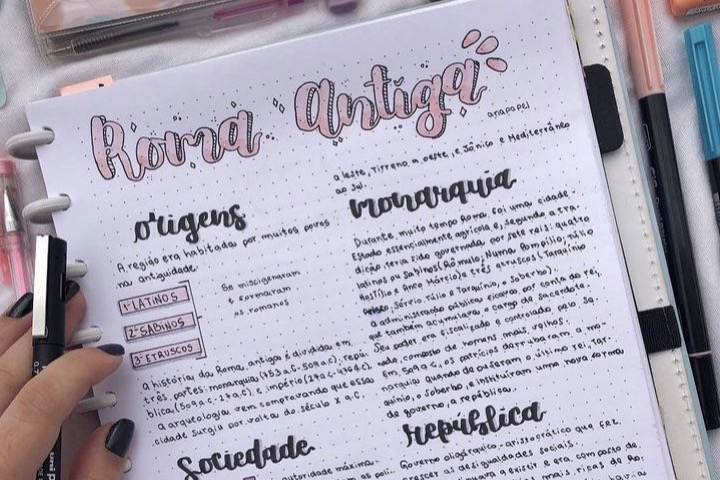 Roma Antiga
anapapel
origens
A região era habitada por muitos povos
na antiguidade.
1- LATINOS
2- SABINOS
3- ETRUSCOS
Se miscigenaram
e formaram
os romanos
a história da Roma antiga é dividida em
três partes: monarquia (753 a.C-509 a.C), repú
blica (509 a.C-27 a.C), e império
a arqueologia vem comprovando que essa
cidade surgiu por volta do século X a.C.
Sociedade
autoridade máxima.
a leste, Tirreno, a oeste, e Jônico e Mediterrâneo
ao sul.
monarquia
Durante muito tempo Roma, foi uma cidade-
Estado essencialmente agrícola e, segundo a tra-
dição, teria sido governada por sete reis: quatro
latinos ou sabinos (Rômulo, Numa Pompílio, Túlio
Hostílio e Anco Márcio) e três etruscos (Tarquínio
Prisco, Sérvio Túlio e Tarquínio, o soberbo).
a administração pública ficava por conta do rei,
que também acumulava o cargo de sacerdote.
Seu poder era fiscalizado e controlado pelo Se-
nado, composto de homens mais velhos.
Em 509 a.C, os patrícios derrubaram a mo-
narquia quando depuseram o último rei, Tar-
quínio, o soberbo, e instituíram uma nova forma
de governo, a república.
república
Governo oligárquico-aristocrático que fez
crescer as desigualdades sociais.
a existir e era composto de
mais ricas de Ro-